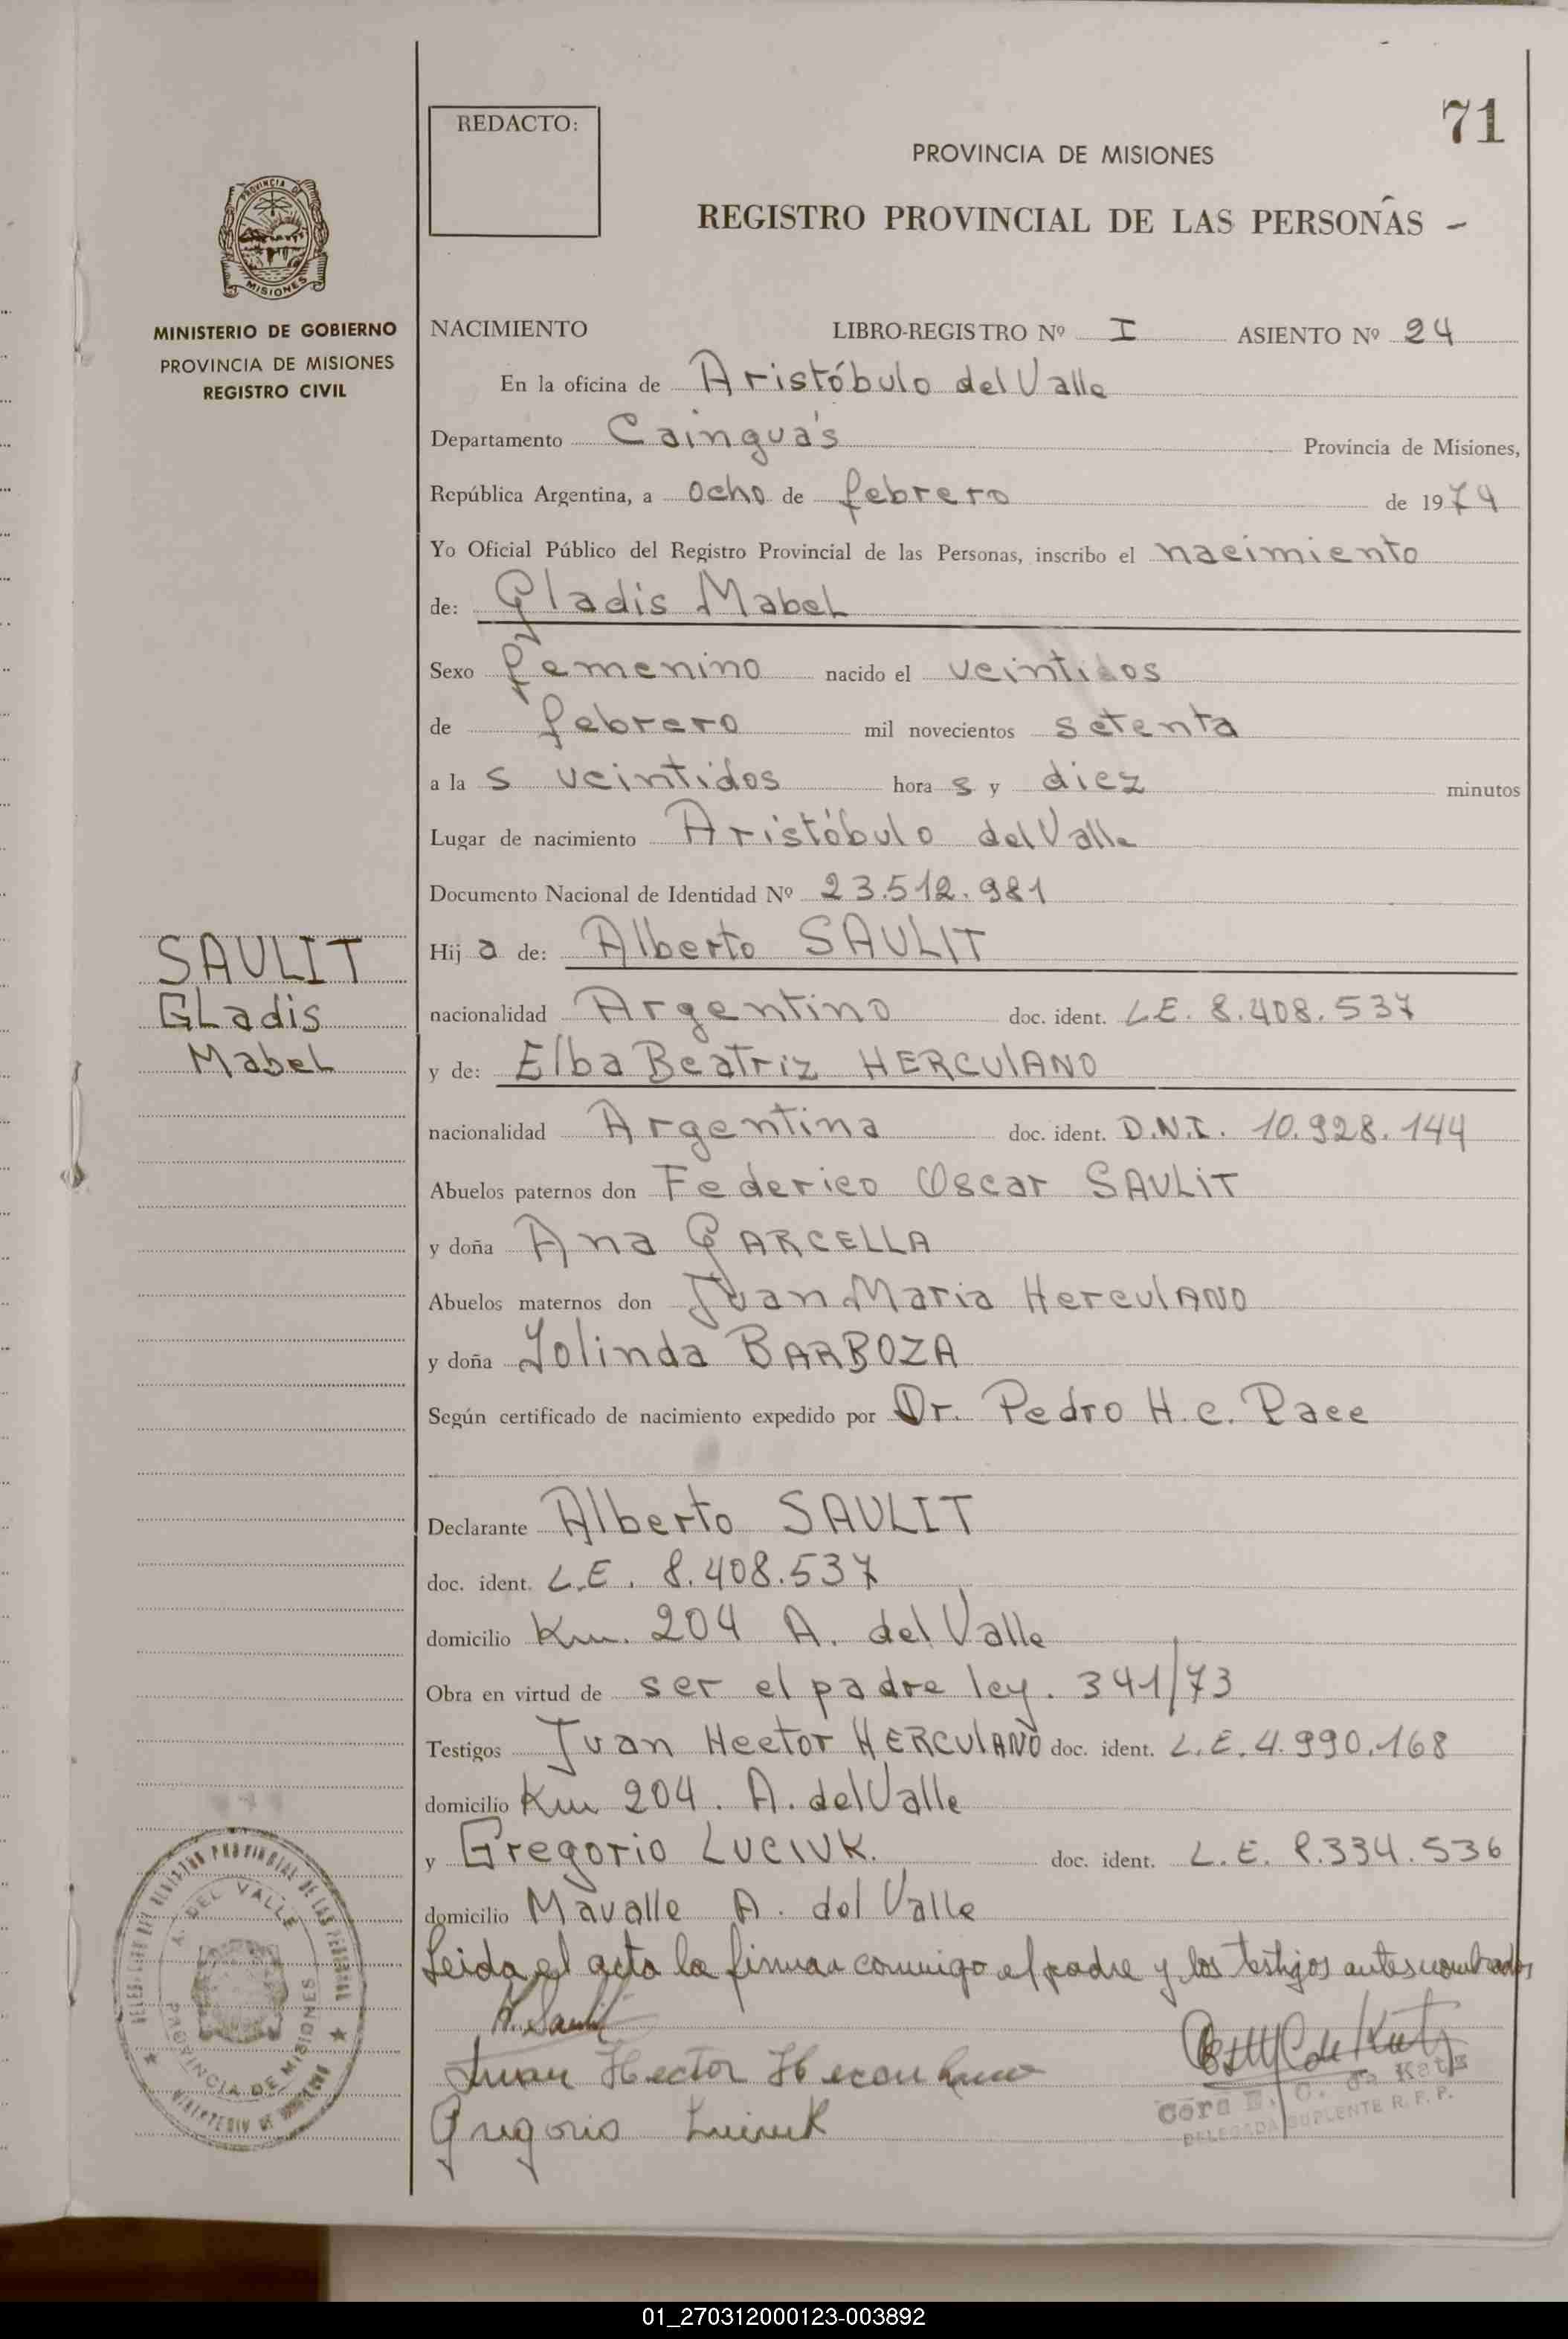 71
REDACTO:
PROVINCIA DE MISIONES
REGISTRO PROVINCIAL DE LAS PERSONAS
PROVINCIA DE
MISIONES
MINISTERIO DE GOBIERNO
PROVINCIA DE MISIONES
REGISTRO CIVIL
NACIMIENTO LIBRO-REGISTRO Nº I ASIENTO Nº 24
En la oficina de Aristóbulo del Valle
Departamento Cainguás Provincia de Misiones,
República Argentina, a ocho de febrero de 1974
Yo Oficial Público del Registro Provincial de las Personas, inscribo el nacimiento
de: Gladis Mabel
Sexo femenino nacido el veintidos
de febrero mil novecientos setenta
a la s veintidos hora s y diez minutos
Lugar de nacimiento Aristóbulo del Valle
Documento Nacional de Identidad Nº 23.512.981
SAULIT
Gladis
Mabel
Hij a de: Alberto SAULIT
nacionalidad Argentino doc. ident. L.E. 8.408.537
y de: Elba Beatriz HERCULANO
nacionalidad Argentina doc. ident. D.N.I. 10.928.144
Abuelos paternos don Federico Oscar SAULIT
y doña Ana GARCELLA
Abuelos maternos don Juan Maria HerculANO
y doña Iolinda BARBOZA
Según certificado de nacimiento expedido por Dr. Pedro H.C. Pace
Declarante Alberto SAULIT
doc. ident. L.E. 8.408.537
domicilio Km. 204 A. del Valle
Obra en virtud de ser el padre ley. 341/73
Testigos Juan Hector HERCULANO doc. ident. L.E. 4.990.168
domicilio Km 204. A. del Valle
y Gregorio LUCIUK. doc. ident. L.E. 8.334.536
domicilio Mavalle A. del Valle
Leida el acta la firman conmigo el padre y los testigos antes nombrados
A. Saulit
Juan Hector
Gregorio Luciuk
Cora E. C. de Katz
DELEGADA SUPLENTE R. P. P.
DELEGACION DEL REGISTRO PROVINCIAL DE LAS PERSONAS
A. DEL VALLE
PROVINCIA DE MISIONES
MINISTERIO DE GOBIERNO
01_270312000123-003892